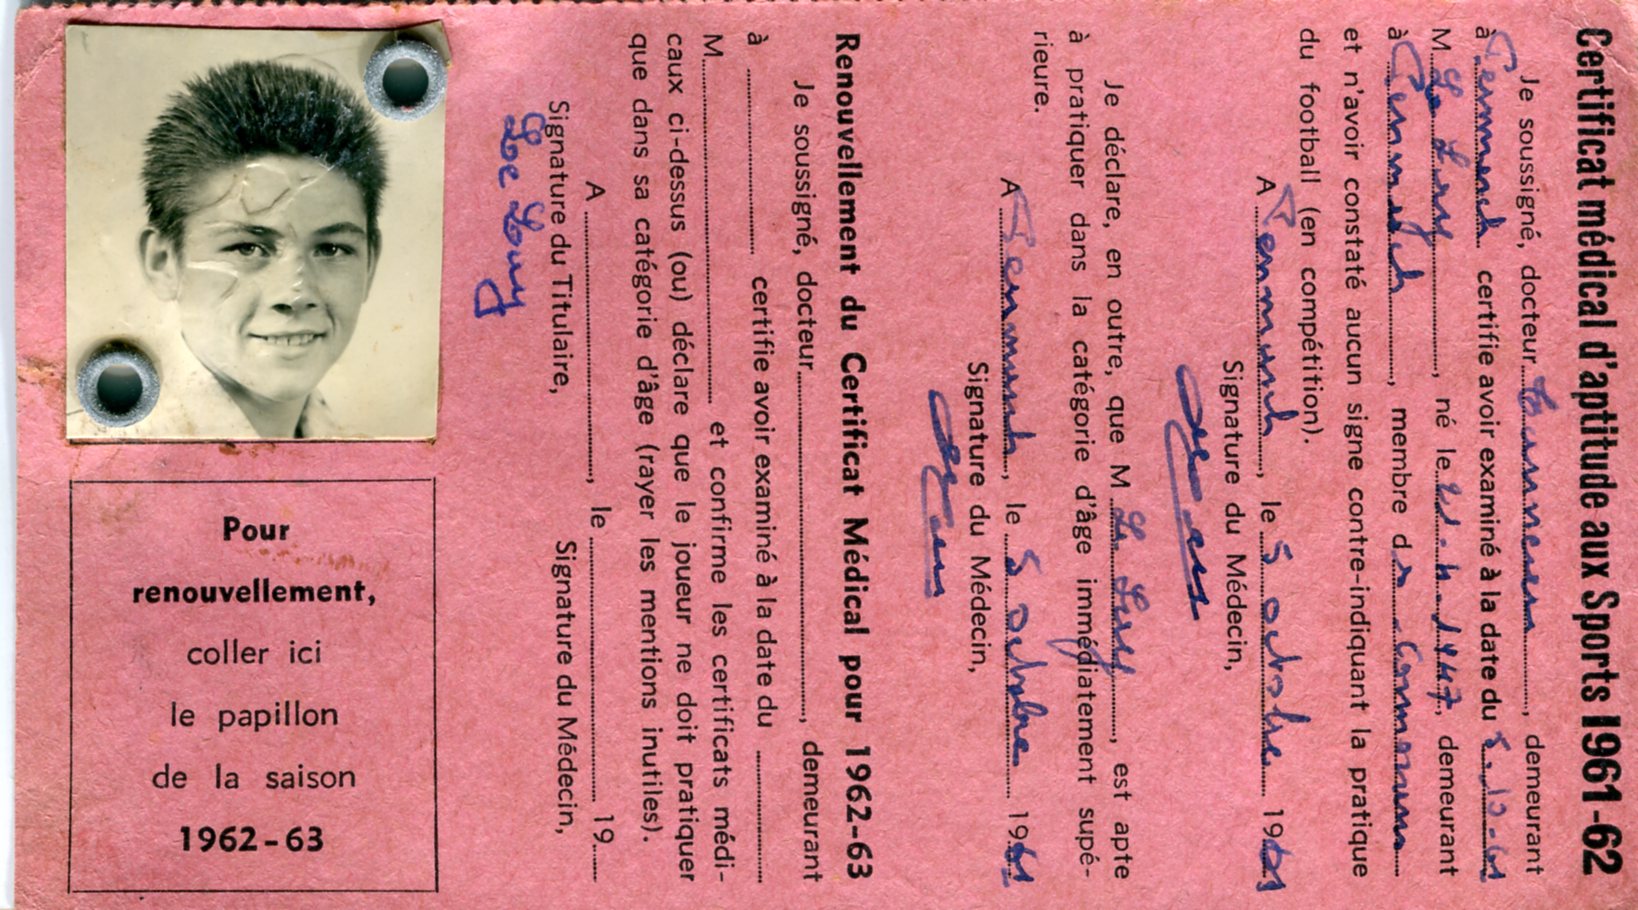 Certificat médical d'aptitude aux Sports 1961-62
Je soussigné, docteur, demeurant
à certifie avoir examiné à la date du 5-10-61
M, né le 1947, demeurant
à, membre d
et n'avoir constaté aucun signe contre-indiquant la pratique
du football (en compétition).
A, le 5 octobre 1961
Signature du Médecin,
Je déclare, en outre, que M, est apte
à pratiquer dans la catégorie d'âge immédiatement supé-
rieure.
A, le 5 octobre 1961
Signature du Médecin,
Renouvellement du Certificat Médical pour 1962-63
Je soussigné, docteur, demeurant
à certifie avoir examiné à la date du
M. et confirme les certificats médi-
caux ci-dessus (ou) déclare que le joueur ne doit pratiquer
que dans sa catégorie d'âge (rayer les mentions inutiles).
A, le 19
Signature du Titulaire, Signature du Médecin,
Pour
renouvellement,
coller ici
le papillon
de la saison
1962-63